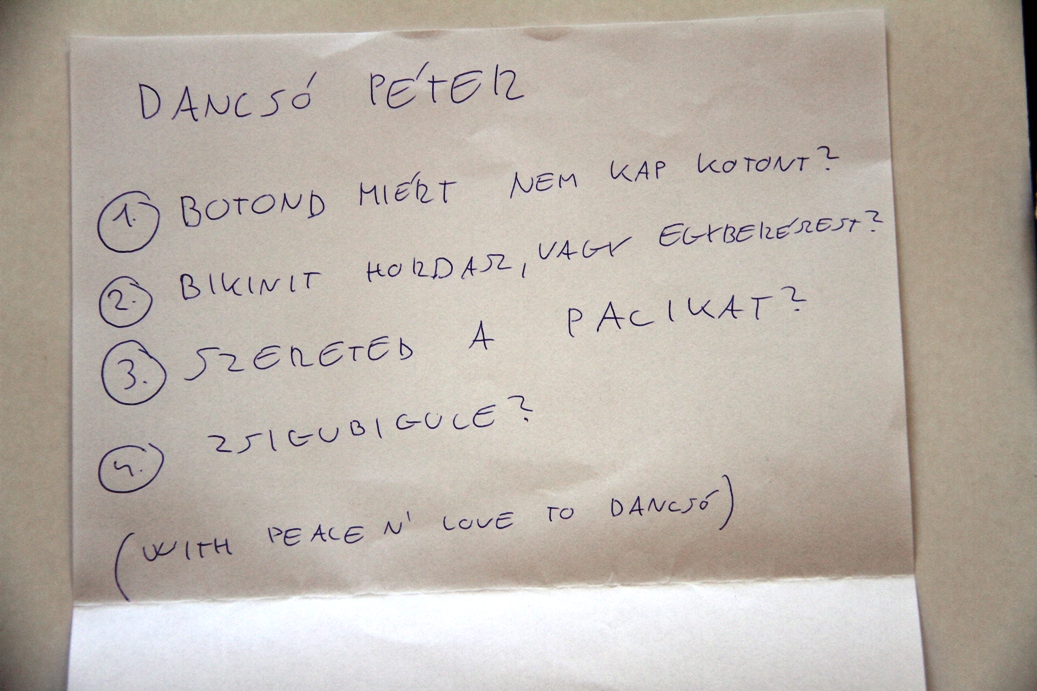 DANCSÓ PÉTER
1. BOTOND MIÉRT NEM KAP KOTONT?
2. BIKINIT HORDASZ, VAGY EGYBERÉSZEST?
3. SZERETED A PACIKAT?
4. ZSIGUBIGULE?
(WITH PEACE N' LOVE TO DANCSÓ)